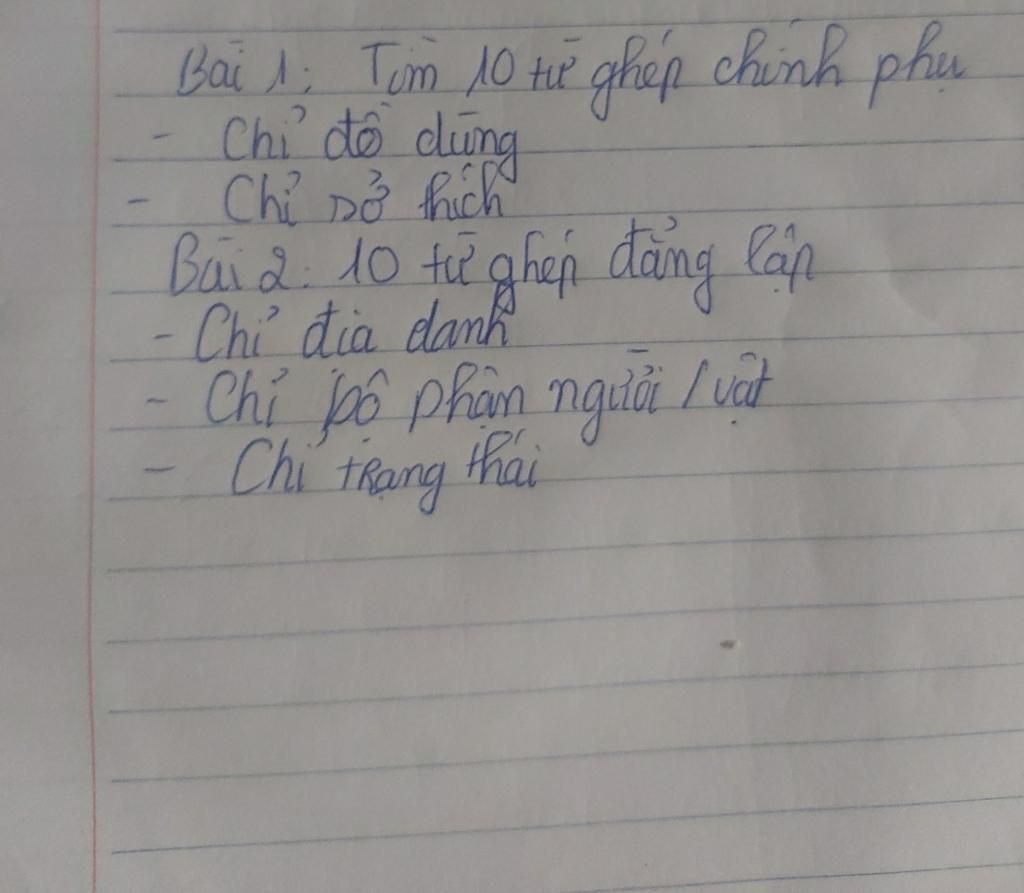 Bài 1: Tìm 10 từ ghép chính phụ
- Chỉ đồ dùng
- Chỉ sở thích
Bài 2: 10 từ ghép đẳng lập
- Chỉ địa danh
- Chỉ bộ phận người / vật
- Chỉ trạng thái